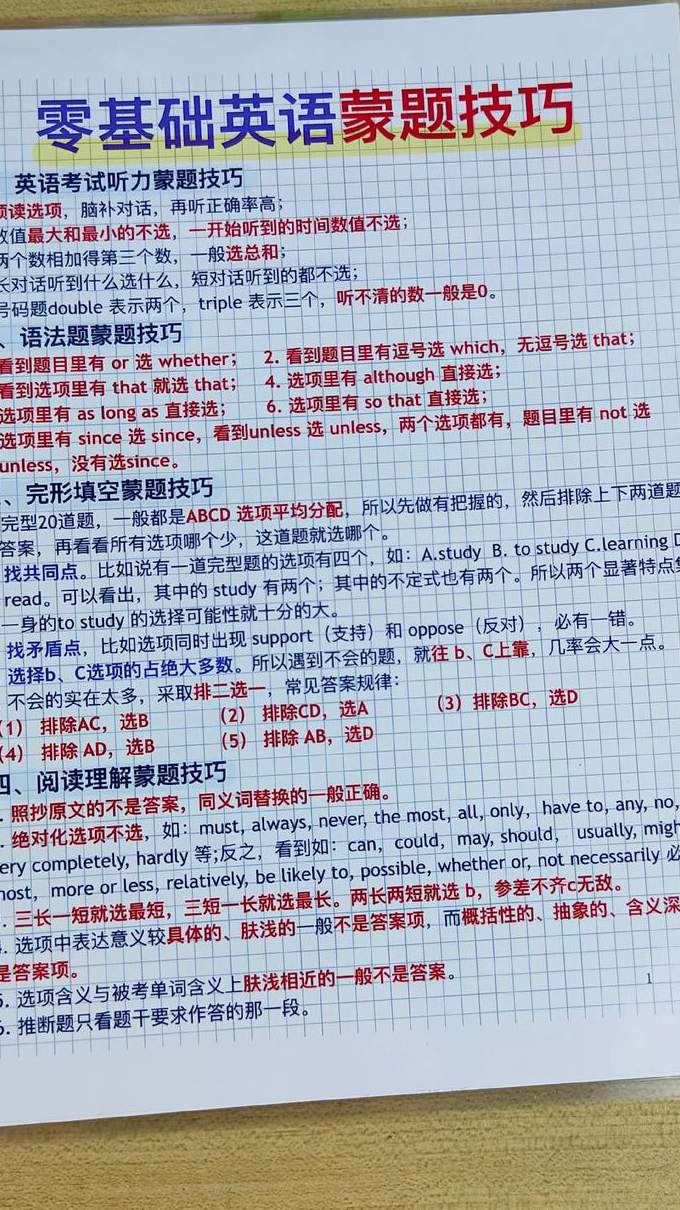 零基础英语蒙题技巧
英语考试听力蒙题技巧
预读选项，脑补对话，再听正确率高；
数值最大和最小的不选，一开始听到的时间数值不选；
两个数相加得第三个数，一般选总和；
长对话听到什么选什么，短对话听到的都不选；
号码题double 表示两个，triple 表示三个，听不清的数一般是0。
、语法题蒙题技巧
看到题目里有 or 选 whether； 2. 看到题目里有逗号选 which，无逗号选 that；
看到选项里有 that 就选 that； 4. 选项里有 although 直接选；
选项里有 as long as 直接选； 6. 选项里有 so that 直接选；
选项里有 since 选 since，看到unless 选 unless，两个选项都有，题目里有 not 选
unless，没有选since。
、完形填空蒙题技巧
完型20道题，一般都是ABCD 选项平均分配，所以先做有把握的，然后排除上下两道题
答案，再看看所有选项哪个少，这道题就选哪个。
找共同点。比如说有一道完型题的选项有四个，如：A.study B. to study C.learning D
read。可以看出，其中的 study 有两个；其中的不定式也有两个。所以两个显著特点集
一身的to study 的选择可能性就十分的大。
找矛盾点，比如选项同时出现 support（支持）和 oppose（反对），必有一错。
选择b、C选项的占绝大多数。所以遇到不会的题，就往 b、C上靠，几率会大一点。
不会的实在太多，采取排二选一，常见答案规律：
（1） 排除AC，选B （2） 排除CD，选A （3）排除BC，选D
（4） 排除 AD，选B （5） 排除 AB，选D
四、阅读理解蒙题技巧
. 照抄原文的不是答案，同义词替换的一般正确。
. 绝对化选项不选，如：must, always, never, the most, all, only，have to, any, no,
ery completely, hardly 等;反之，看到如：can，could，may, should， usually, migh
most，more or less, relatively, be likely to, possible, whether or, not necessarily 必
. 三长一短就选最短，三短一长就选最长。两长两短就选 b，参差不齐c无敌。
. 选项中表达意义较具体的、肤浅的一般不是答案项，而概括性的、抽象的、含义深
是答案项。
5. 选项含义与被考单词含义上肤浅相近的一般不是答案。
6. 推断题只看题干要求作答的那一段。
1